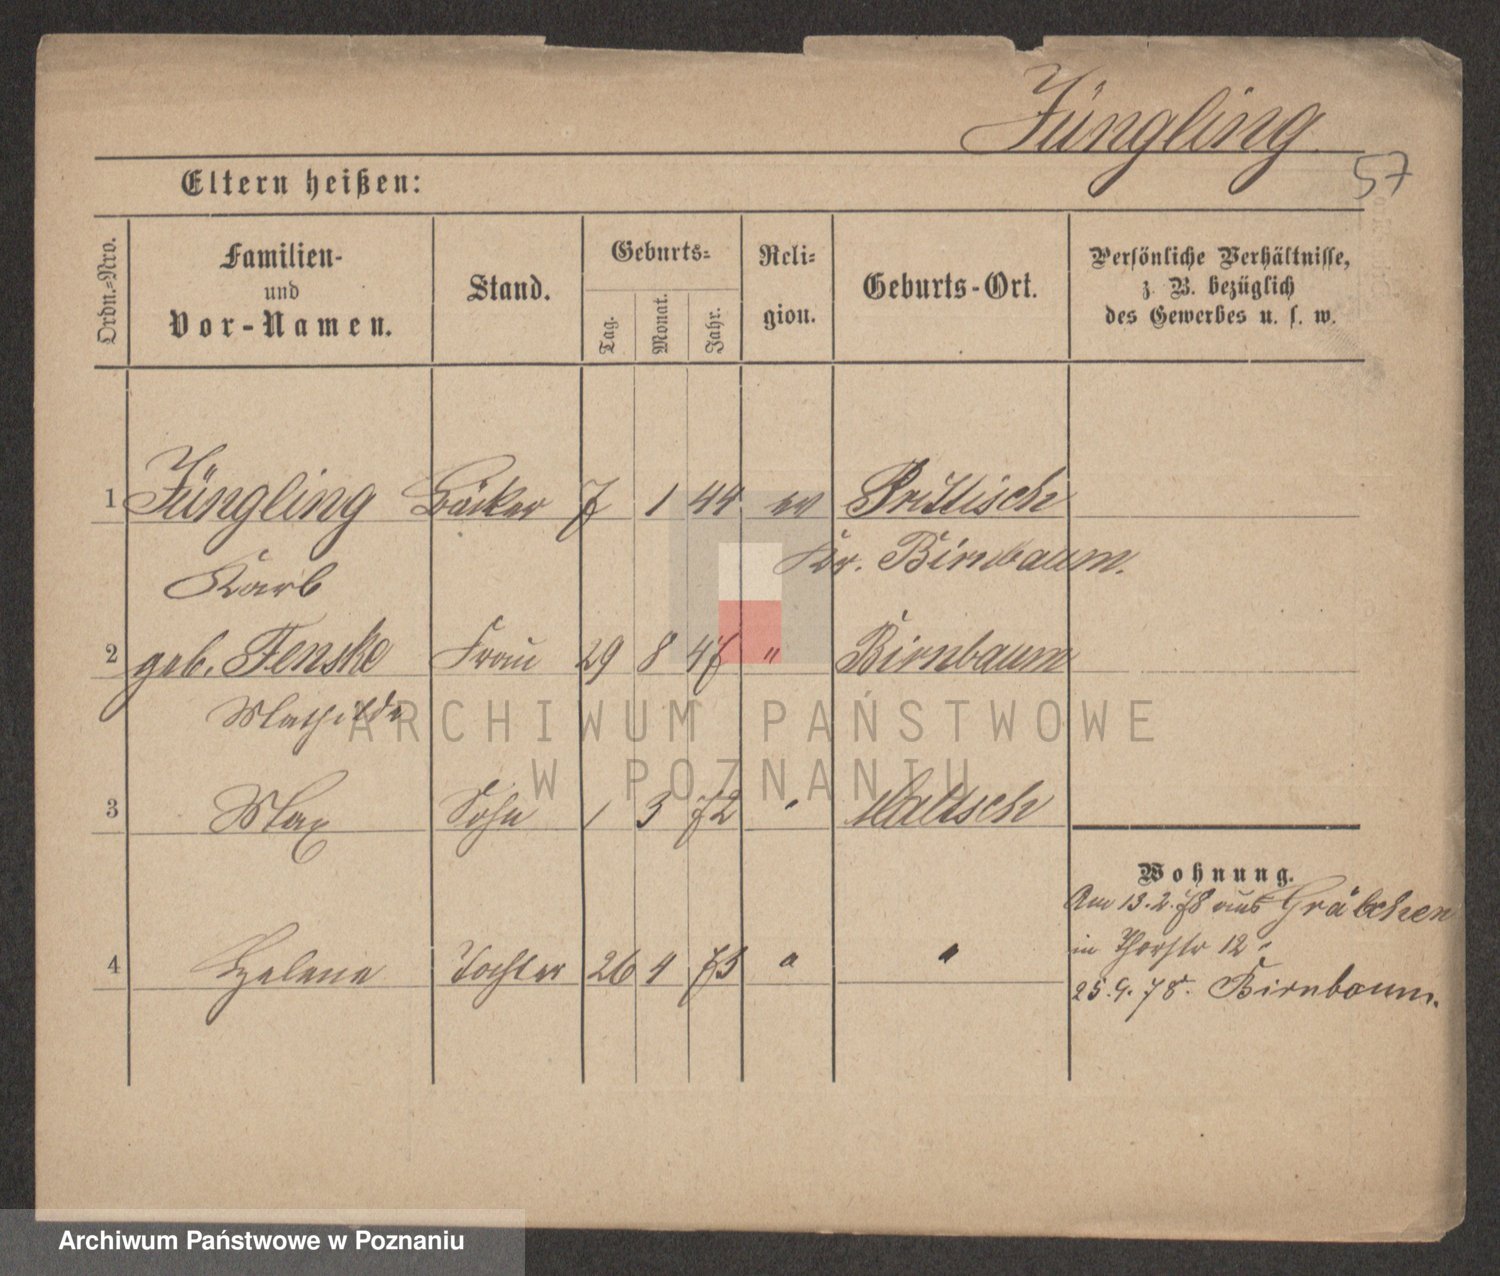 Jüngling
57
Eltern heißen:
Ordn.=Nro.
Familien-
und
Vor-Namen.
Stand.
Geburts=
Tag.
Monat.
Jahr.
Reli=
gion.
Geburts-Ort.
Persönliche Verhältnisse,
z. B. bezüglich
des Gewerbes u. s. w.
1 Jüngling Bäcker 7 1 44 ev Prittisch
Karl Kr. Birnbaum.
2 geb. Fenske Frau 29 8 47 " Birnbaum
Mathilde
3 Max Sohn 1 3 72 " Maltsch
Wohnung.
Am 13.2.78 aus Gräbchen
in Thorstr 12.
4 Helene Tochter 26 4 75 " "
25.9.78. Birnbaum.
ARCHIWUM PAŃSTWOWE
W POZNANIU
Archiwum Państwowe w Poznaniu